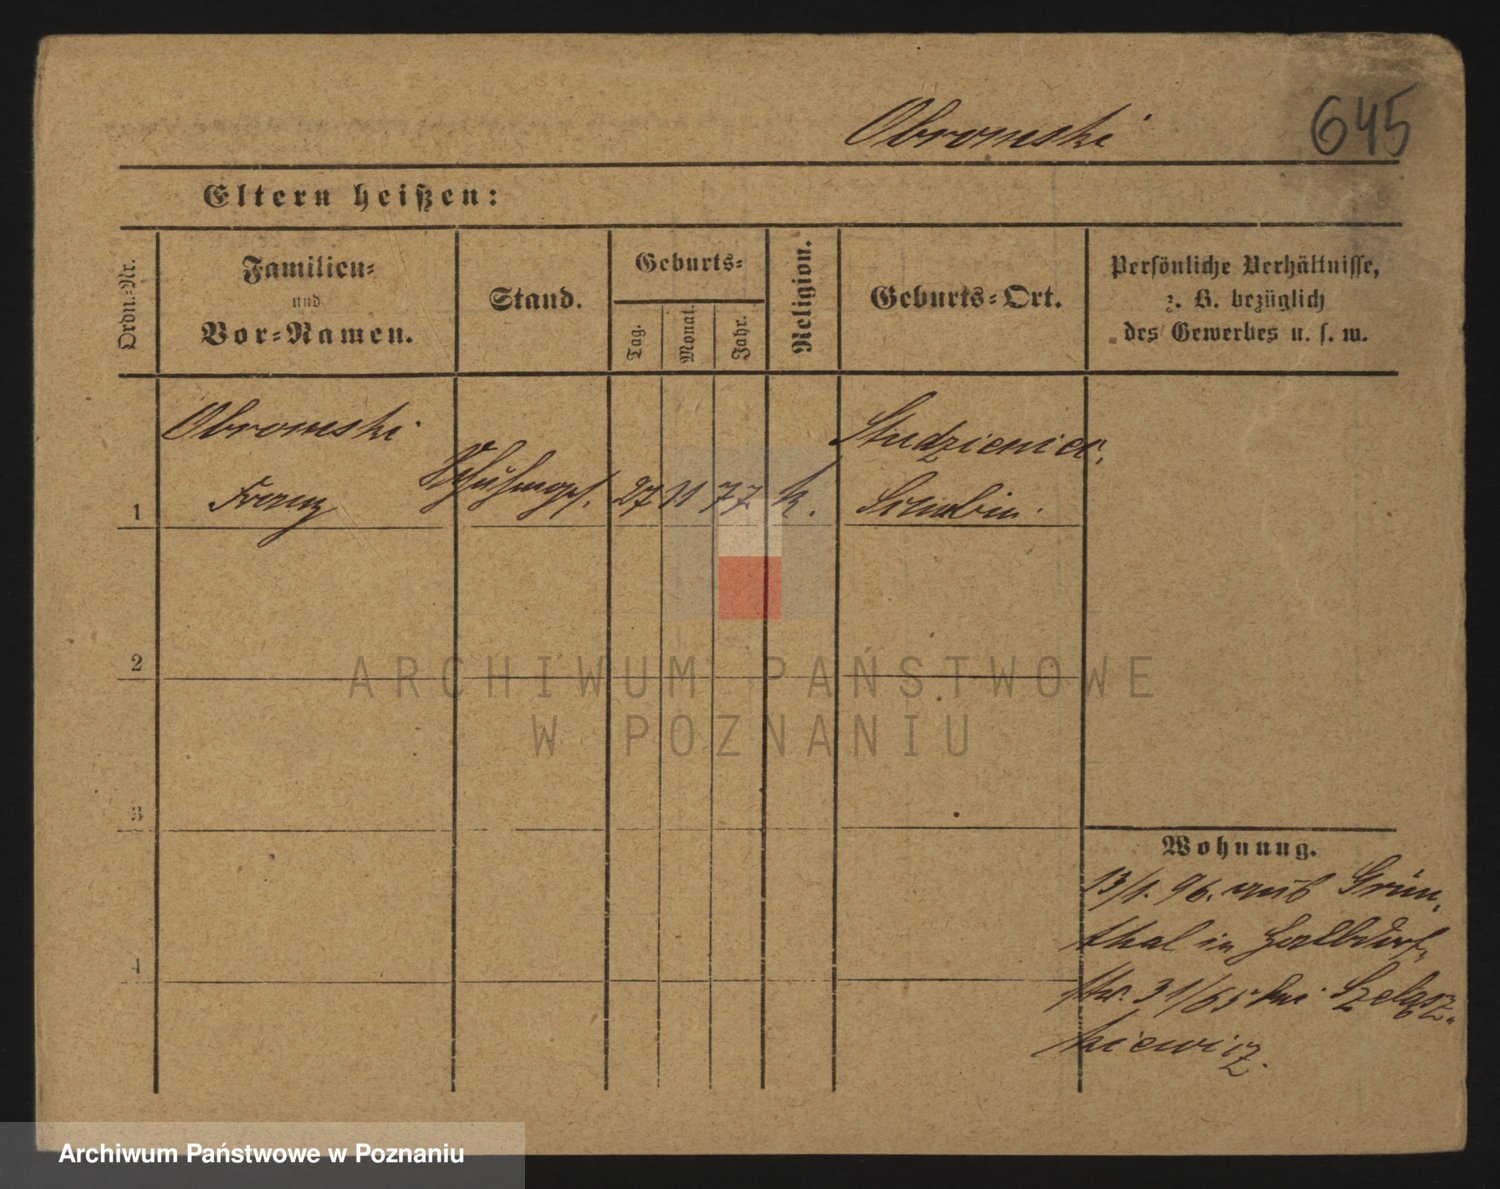 Obromski
645
Eltern heißen:
Ordn.-Nr.
Familien-
und
Vor-Namen.
Stand.
Geburts-
Tag.
Monat.
Jahr.
Religion.
Geburts-Ort.
Persönliche Verhältnisse,
z. B. bezüglich
des Gewerbes u. s. w.
Obromski
Franz
1
27 11 77 k.
Studzieniec,
2
3
4
Wohnung.
13/1. 96. aus Grün-
thal in Halbdorf-
str. 31/65 bei
ARCHIWUM PAŃSTWOWE
W POZNANIU
Archiwum Państwowe w Poznaniu